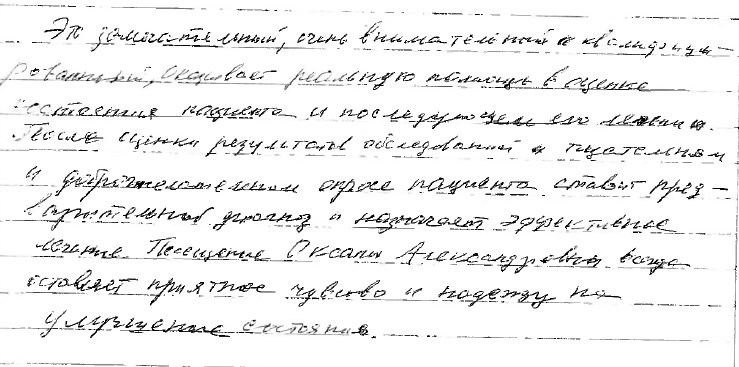 Это замечательный, очень внимательный и квалифици-
рованный, оказывает реальную помощь в оценке
состояния пациента и последующем его лечении.
После оценки результатов обследований и тщательном
и доброжелательном опросе пациента ставит пред-
варительный диагноз и назначает эффективное
лечение. Посещение Оксаны Александровны всегда
оставляет приятное чувство и надежду на
улучшение состояния.